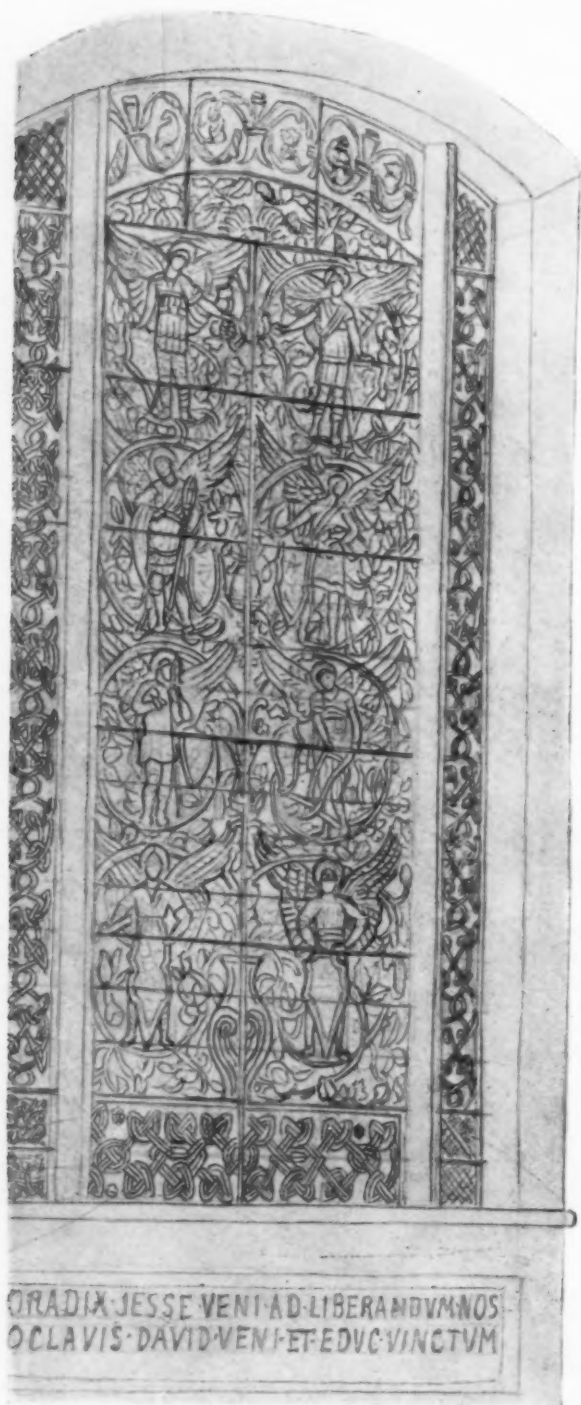 O RADIX·JESSE VENI·AD·LIBERANDVM·NOS
O CLAVIS·DAVID·VENI·ET·EDVC·VINCTVM